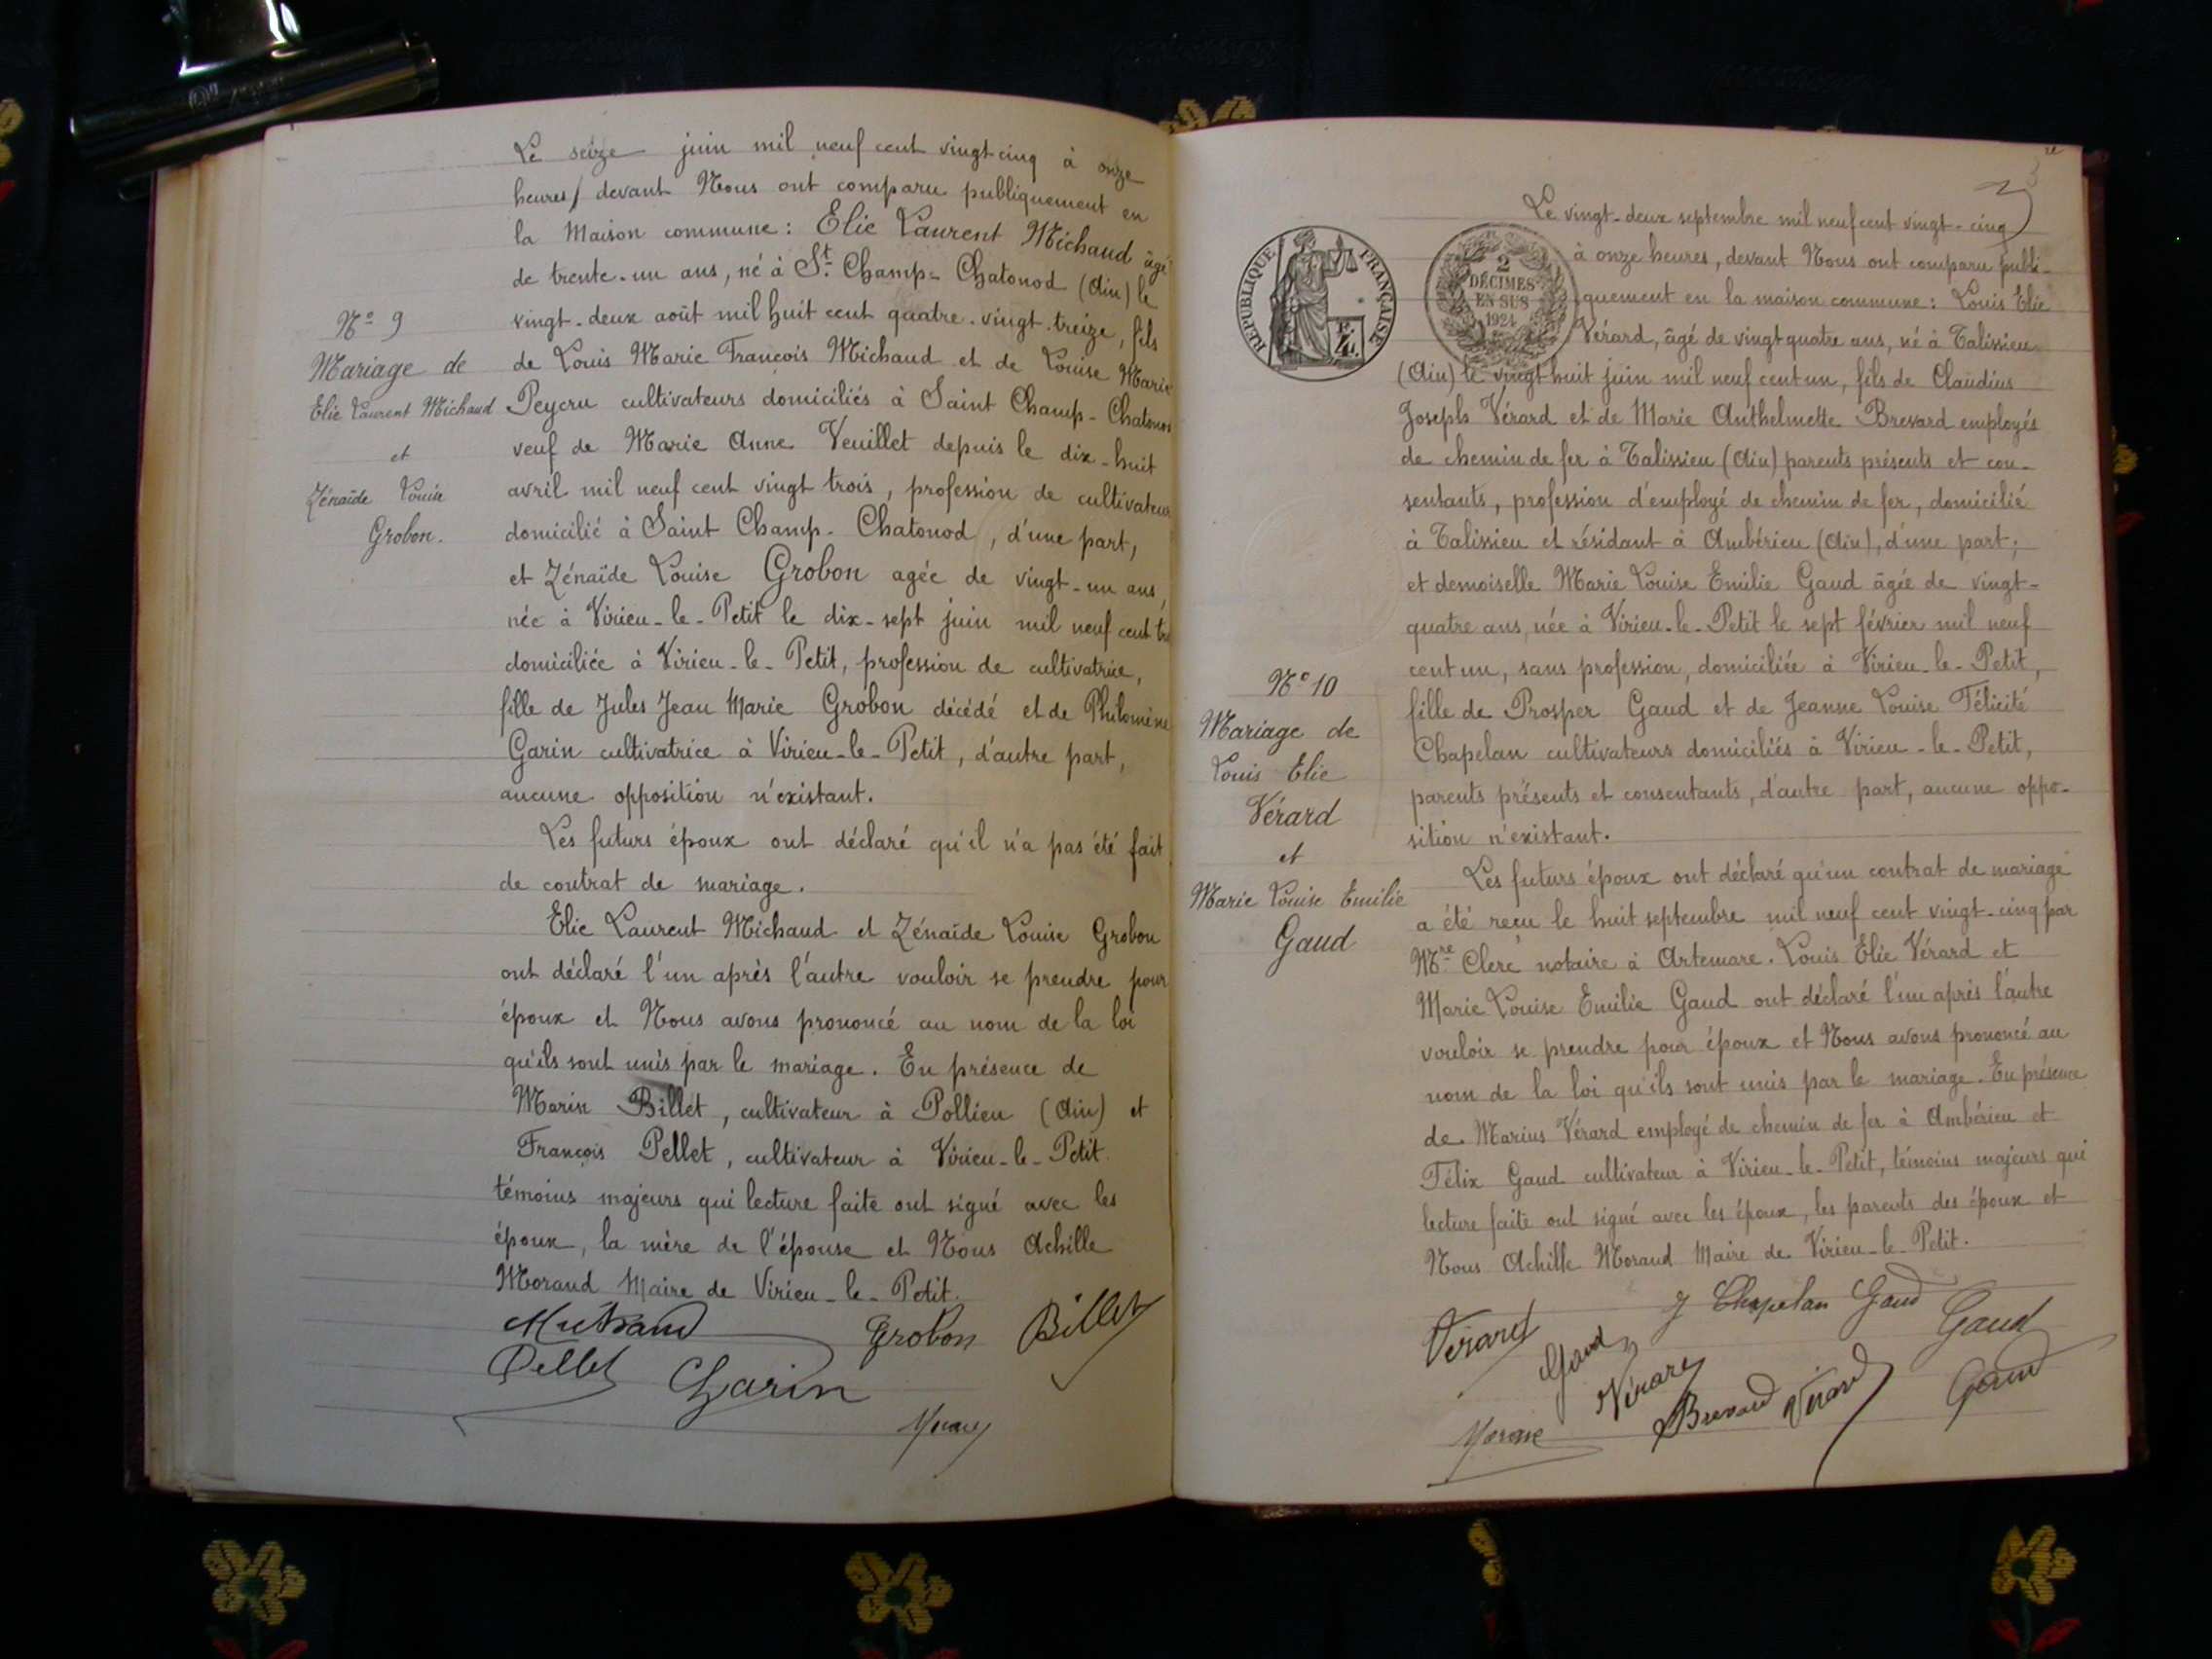 Le seize juin mil neuf cent vingt cinq à onze
heures, devant Nous ont comparu publiquement en
la Maison commune : Elie Laurent Michaud âgé
de trente-un ans, né à St Champ-Chatonod (Ain) le
vingt-deux août mil huit cent quatre-vingt-treize, fils
de Louis Marie François Michaud et de Louise Marie
Peycru cultivateurs domiciliés à Saint Champ-Chatonod
veuf de Marie Anne Veuillet depuis le dix-huit
avril mil neuf cent vingt trois, profession de cultivateur
domicilié à Saint Champ-Chatonod, d'une part,
et Zénaïde Louise Grobon agée de vingt-un ans,
née à Virieu-le-Petit le dix-sept juin mil neuf cent
domiciliée à Virieu-le-Petit, profession de cultivatrice,
fille de Jules Jean Marie Grobon décédé et de Philomène
Garin cultivatrice à Virieu-le-Petit, d'autre part,
aucune opposition n'existant.
Les futurs époux ont déclaré qu'il n'a pas été fait
de contrat de mariage.
Elie Laurent Michaud et Zénaïde Louise Grobon
ont déclaré l'un après l'autre vouloir se prendre pour
époux et Nous avons prononcé au nom de la loi
qu'ils sont unis par le mariage. En présence de
Marin Billet, cultivateur à Pollieu (Ain) et
François Pellet, cultivateur à Virieu-le-Petit
témoins majeurs qui lecture faite ont signé avec les
époux, la mère de l'épouse et Nous Achille
Morand Maire de Virieu-le-Petit.
Grobon Billet
Pellet Garin
N° 9
Mariage de
Elie Laurent Michaud
et
Zénaïde Louise
Grobon.
RÉPUBLIQUE FRANÇAISE
2
DÉCIMES
EN SUS
1924
Le vingt-deux septembre mil neuf cent vingt-cinq
à onze heures, devant Nous ont comparu publi-
quement en la maison commune : Louis Elie
Vérard, âgé de vingt quatre ans, né à Talissieu
(Ain) le vingt-huit juin mil neuf cent un, fils de Claudius
Joseph Vérard et de Marie Anthelmette Brevard employés
de chemin de fer à Talissieu (Ain) parents présents et con-
sentants, profession d'employé de chemin de fer, domicilié
à Talissieu et résidant à Ambérieu (Ain), d'une part ;
et demoiselle Marie Louise Emilie Gaud âgée de vingt-
quatre ans, née à Virieu-le-Petit le sept février mil neuf
cent un, sans profession, domiciliée à Virieu-le-Petit,
fille de Prosper Gaud et de Jeanne Louise Félicité
Chapelan cultivateurs domiciliés à Virieu-le-Petit,
parents présents et consentants, d'autre part, aucune oppo-
sition n'existant.
Les futurs époux ont déclaré qu'un contrat de mariage
a été reçu le huit septembre mil neuf cent vingt-cinq par
Mre Clerc notaire à Artemare. Louis Elie Vérard et
Marie Louise Emilie Gaud ont déclaré l'un après l'autre
vouloir se prendre pour époux et Nous avons prononcé au
nom de la loi qu'ils sont unis par le mariage. En présence
de Marius Vérard employé de chemin de fer à Ambérieu et
Félix Gaud cultivateur à Virieu-le-Petit, témoins majeurs qui
lecture faite ont signé avec les époux, les parents des époux et
Nous Achille Morand Maire de Virieu-le-Petit.
Vérard J Chapelan Gaud Gaud
Gaud Vérard Brevard Vérard Gaud
N° 10
Mariage de
Louis Elie
Vérard
et
Marie Louise Emilie
Gaud